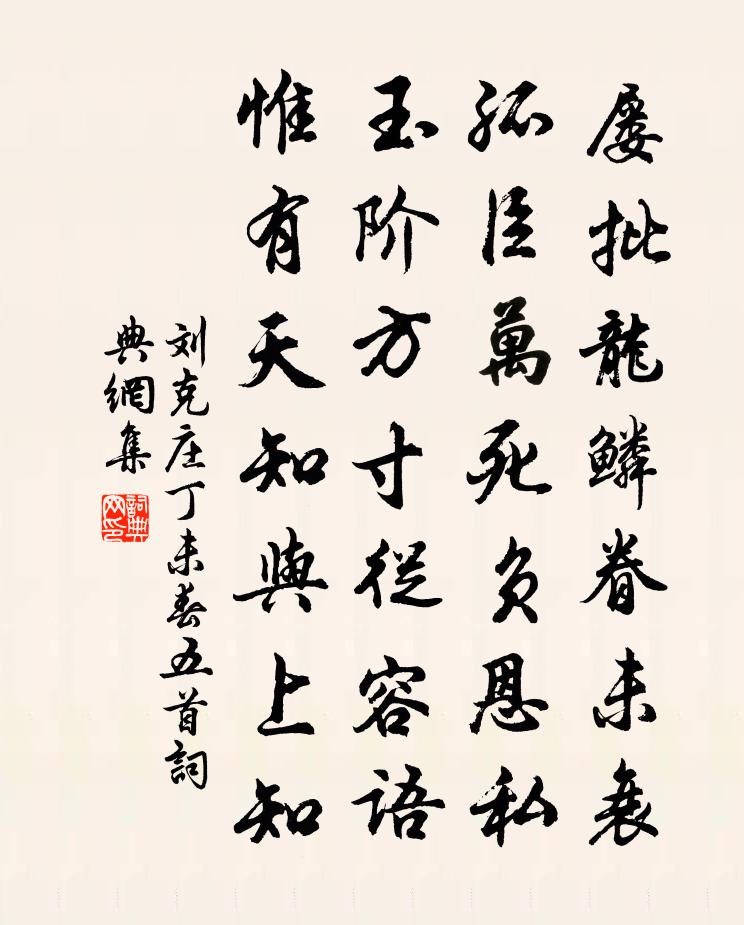 屡批龍鳞眷未衰
孤臣萬死负恩私
玉阶方寸從容语
惟有天知與上知
刘克庄丁未春五首詞
典網集
詞典
网印